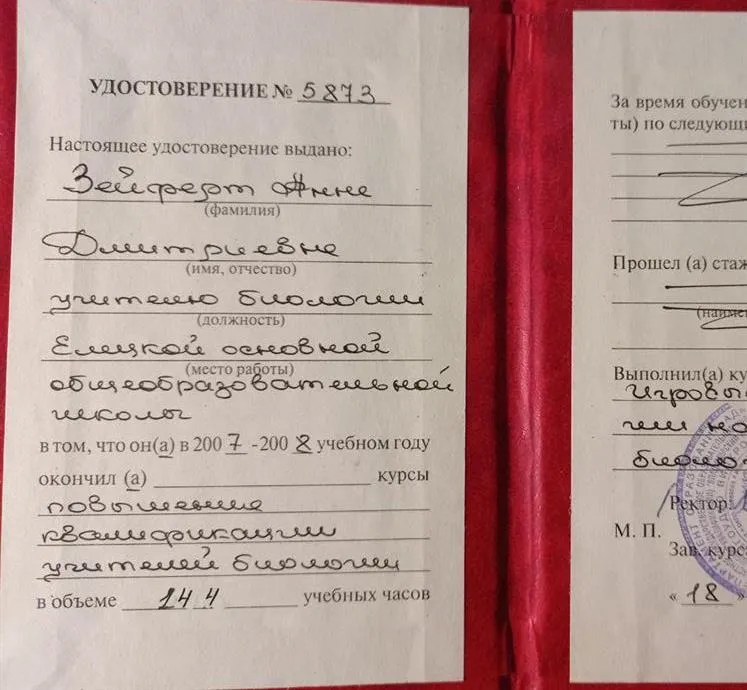 УДОСТОВЕРЕНИЕ № 5873
Настоящее удостоверение выдано:
Зейферт Анне
(фамилия)
Дмитриевне
(имя, отчество)
учителю биологии
(должность)
Елецкой основной
(место работы)
общеобразовательной
школы
в том, что он(а) в 2007-2008 учебном году
окончил (а) курсы
повышение
квалификации
учителей биологии
в объеме 144 учебных часов
За время обучен
ты) по следующи
Прошел (а) стаж
(наимен
Выполнил(а) ку
Игровы
гии на
биолог
Ректор:
М. П.
Зав. курс
« 18 »